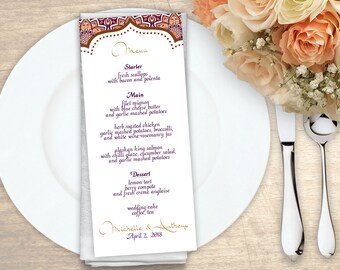 Menu
Starter
fresh scallops
with bacon and polenta
Main
filet mignon
with blue cheese butter
and garlic mashed potatoes
herb roasted chicken
garlic mashed potatoes, broccoli,
and white wine-rosemary jus
alaskan king salmon
with chilli glaze, cucumber salad,
and garlic mashed potatoes
Dessert
lemon tart
berry compote
and fresh creme anglaise
wedding cake
coffee, tea
Michelle & Anthony
April 2, 2018